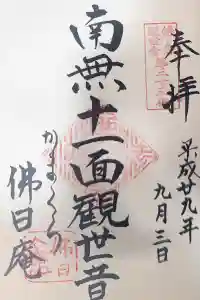 奉拝
平成廿九年
九月三日
南無十一面観世音
かまくら
佛日庵